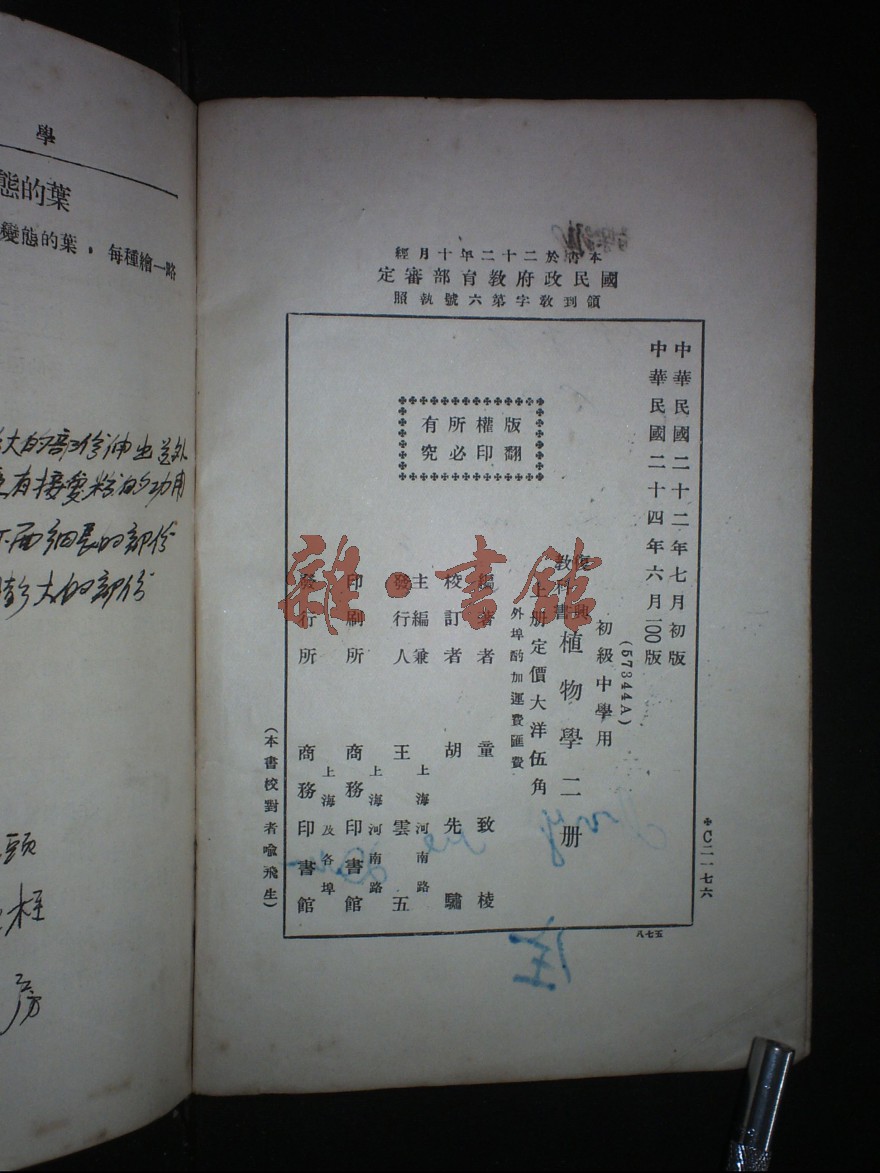 學
態的葉
變態的葉，每種繪一略
大的部份伸出並外
有接受粉的功用
下面細長的部份
膨大的部份
頭
柱
房
本書於二十二年十月經
國民政府教育部審定
領到教字第六號執照
中華民國二十二年七月初版
中華民國二十四年六月一〇〇版
(57344A)
初級中學用
復興教科書 植物學二册
上册定價大洋伍角
外埠酌加運費匯費
版權所有
翻印必究
編著者 童致棱
校訂者 胡先驌
主編兼發行人 王雲五
上海河南路
印刷所 商務印書館
上海河南路
發行所 商務印書館
上海及各埠
(本書校對者喻飛生)
C二一七六
八七五
雜·書館